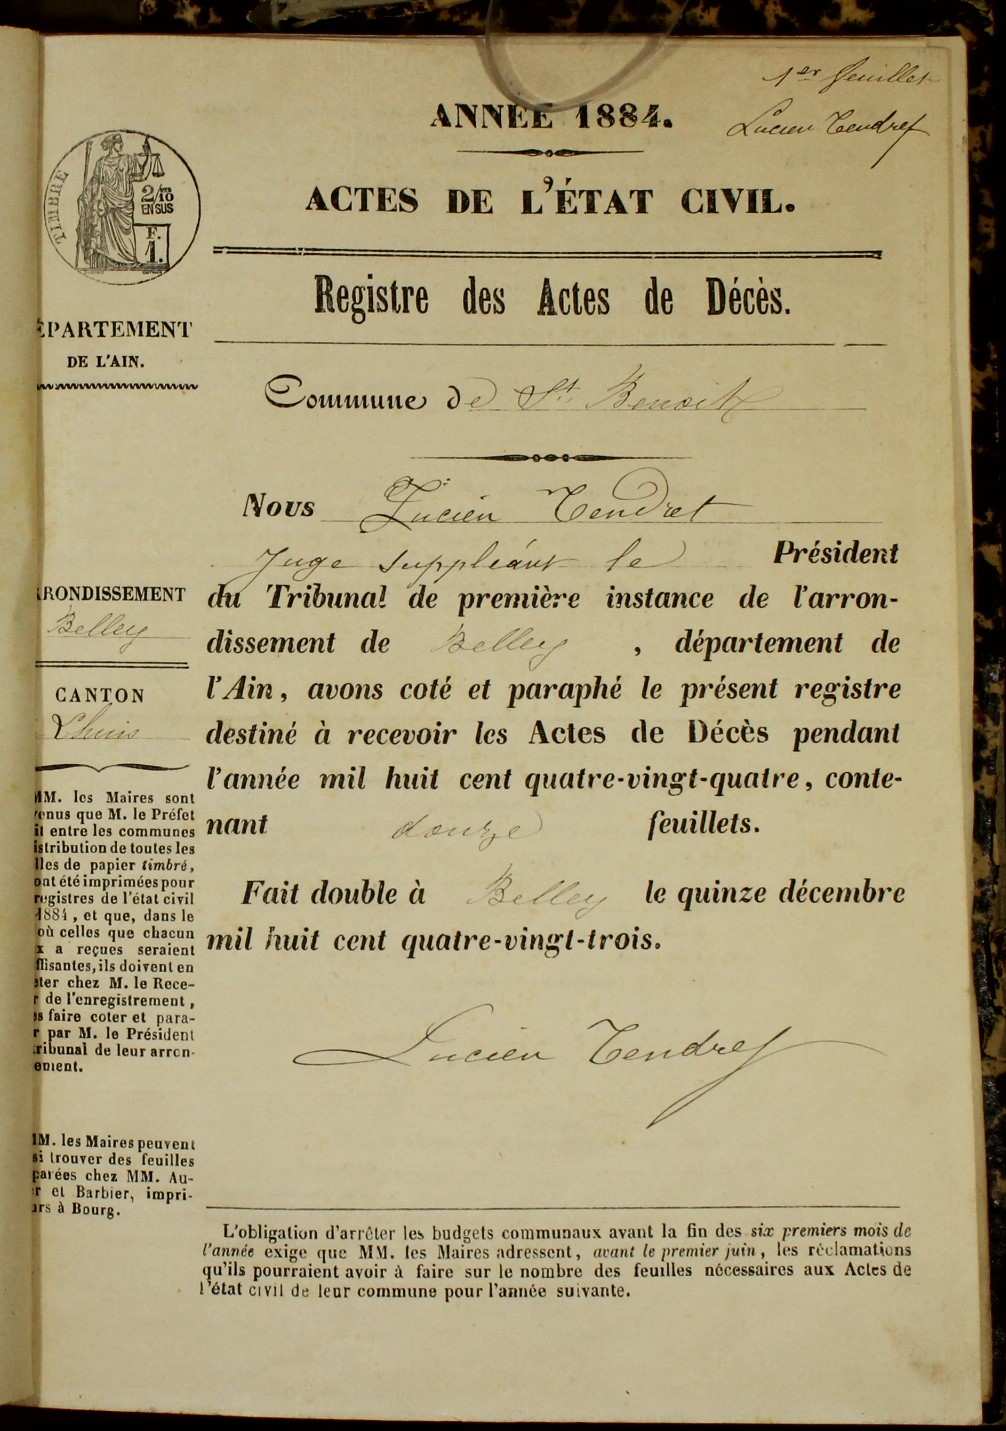 1er feuillet
Lucien Tendret
ANNÉE 1884.
ACTES DE L'ÉTAT CIVIL.
TIMBRE
2/10
EN SUS
F.
1.
Registre des Actes de Décès.
ÉPARTEMENT
DE L'AIN.
Commune de St Benoit
Nous Lucien Tendret
Juge suppléant le Président
du Tribunal de première instance de l'arron-
dissement de Belley, département de
l'Ain, avons coté et paraphé le présent registre
destiné à recevoir les Actes de Décès pendant
l'année mil huit cent quatre-vingt-quatre, conte-
nant douze feuillets.
Fait double à Belley le quinze décembre
mil huit cent quatre-vingt-trois.
Lucien Tendret
RRONDISSEMENT
Belley
CANTON
Lhuis
MM. les Maires sont
venus que M. le Préfet
it entre les communes
istribution de toutes les
lles de papier timbré,
ont été imprimées pour
registres de l'état civil
1884, et que, dans le
où celles que chacun
x a reçues seraient
ffisantes, ils doivent en
ter chez M. le Rece-
r de l'enregistrement,
es faire coter et para-
r par M. le Président
ribunal de leur arron-
ement.
MM. les Maires peuvent
si trouver des feuilles
parées chez MM. Au-
r et Barbier, impri-
urs à Bourg.
L'obligation d'arrêter les budgets communaux avant la fin des six premiers mois de
l'année exige que MM. les Maires adressent, avant le premier juin, les réclamations
qu'ils pourraient avoir à faire sur le nombre des feuilles nécessaires aux Actes de
l'état civil de leur commune pour l'année suivante.